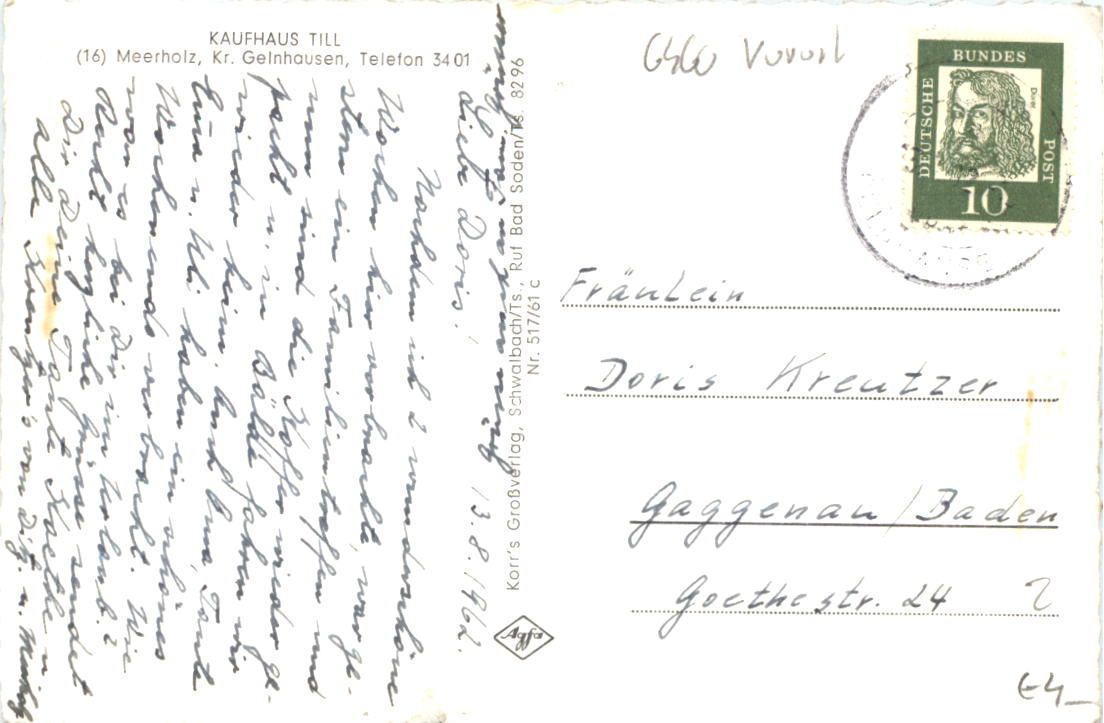 KAUFHAUS TILL
(16) Meerholz, Kr. Gelnhausen, Telefon 34 01
13.8.1962.
Liebe Doris!
Nachdem ich 2 wunderschöne
Wochen hier verbrachte, war ge-
stern ein Familientreffen und
nun sind die Koffer wieder ge-
packt u. in Bälde fahren wir
wieder heim. Auch Oma, Tante
Luna u. Uli haben ein schönes
Wochenende verbracht. Wie
war es bei Dir im Urlaub?
Recht herzliche Grüsse sendet
Dir Deine Tante Kaethe u.
alle Kreutzer's von
Korr's Großverlag, Schwalbach/Ts., Ruf Bad Soden/Ts. 8296
Nr. 517/61 c
Agfa
6460 Vorort
DEUTSCHE
BUNDES
POST
Dürer
10
Fräulein
Doris Kreutzer
Gaggenau/Baden
Goethestr. 24
2